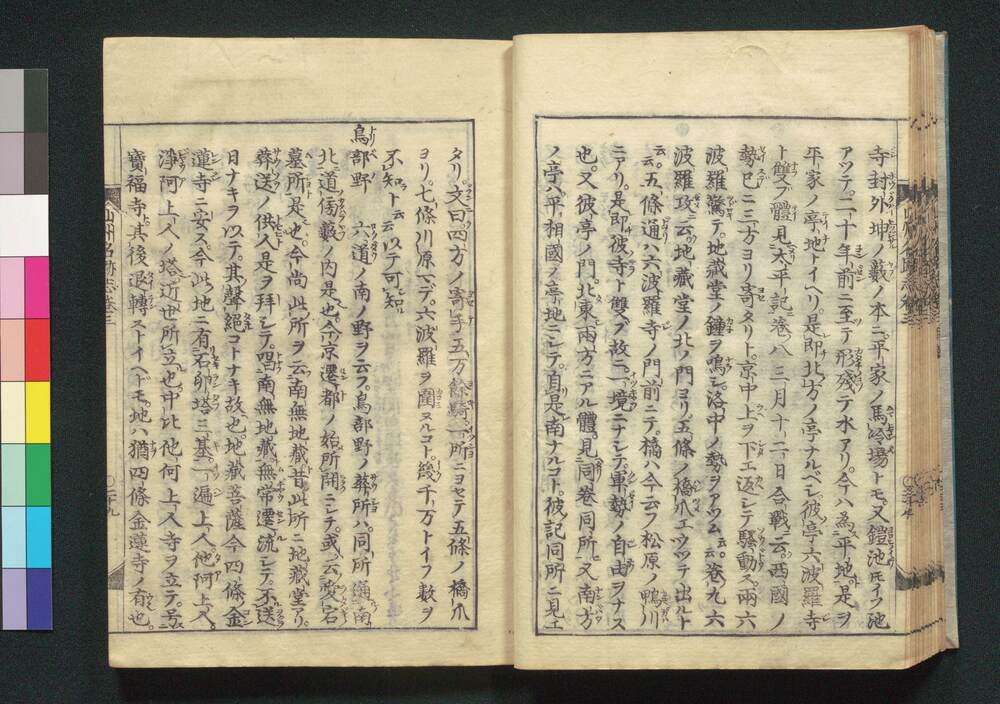 寺封外坤ノ藪ノ本ニ平家ノ馬冷場トモ又鎧池トモイフ池
アツテ二十年前ニ至テ形残テ水アリ今ハ為平地是ヲ
平家ノ亭地トイヘリ是即北方ノ亭ナルベシ彼亭六波羅寺
ト雙ブ體見太平記巻八三月十二日合戰云西國ノ
勢已ニ三方ヨリ寄タリト京中上ヲ下エ返シテ騒動ス兩六
波羅驚テ地藏堂ノ鐘ヲ鳴シ洛中ノ勢ヲアツム云云巻九六
波羅攻云地藏堂ノ北ノ門ヨリ五條ノ橋爪エウツテ出ルト
云云五條通ハ六波羅寺ノ門前ニテ橋ハ今云フ松原ノ鴨川
ニアリ是即彼寺ト雙ブ故ニ一境ニナシテ軍勢ノ自由ヲナス
也又彼亭ノ門北東兩方ニアル體見同巻同所又南方
ノ亭ハ平相國ノ亭ノ地ニシテ自是南ナルコト彼記同所ニ見エ
タリ文曰四方ノ寄手五万餘騎一所ニヨセテ五條ノ橋爪
ヨリ七條川原マデ六波羅ヲ圍ヌルコト幾千万トイフ數ヲ
不知ト云云以テ可知
鳥部野 六道ノ南ノ野ヲ云フ鳥部野ノ葬所ハ同所通南
北道傍藪ノ内是也今京遷都ノ始所開ニシテ或云愛宕
墓所是也今尚此所ヲ云南無地藏昔此所ニ地藏堂アリ
葬送ノ供人是ヲ拜シテ唱南無地藏無常遷流シテ不送
日ナキヲ以テ其聲絕コトナキ故也地藏菩薩今四條金
蓮寺ニ安ス今此地ニ有石卵塔三基一遍上人他阿上人
淨阿上人ノ塔近世所立也中比他何上人寺ヲ立テ号
寶福寺其後退轉ストイヘドモ地ハ猶四條金蓮寺ノ有也
山州名跡志巻三